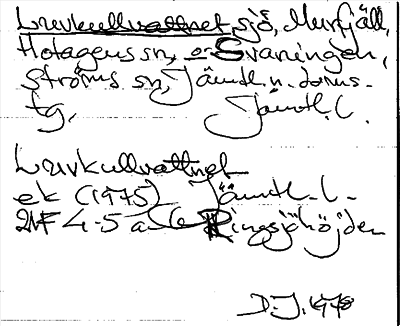 Lruvkullvattnet sjö, Murfjäll,
Hotagens sn, o Svaningen,
Ströms sn, Jämtl. n. doms-
tg. Jämtl. l.
Lruvkullvattnet
ek (1975) Jämtl. l.
21F 4-5 a Ringsjöhöjden
D.J. 1978